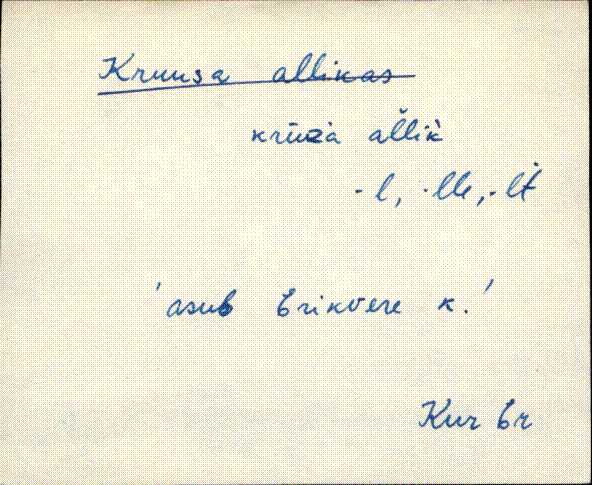 Kruusa allikas
krūzà aľlik̀
-l, -lle, -lt
'asub Erikvere k.'
Kur Er